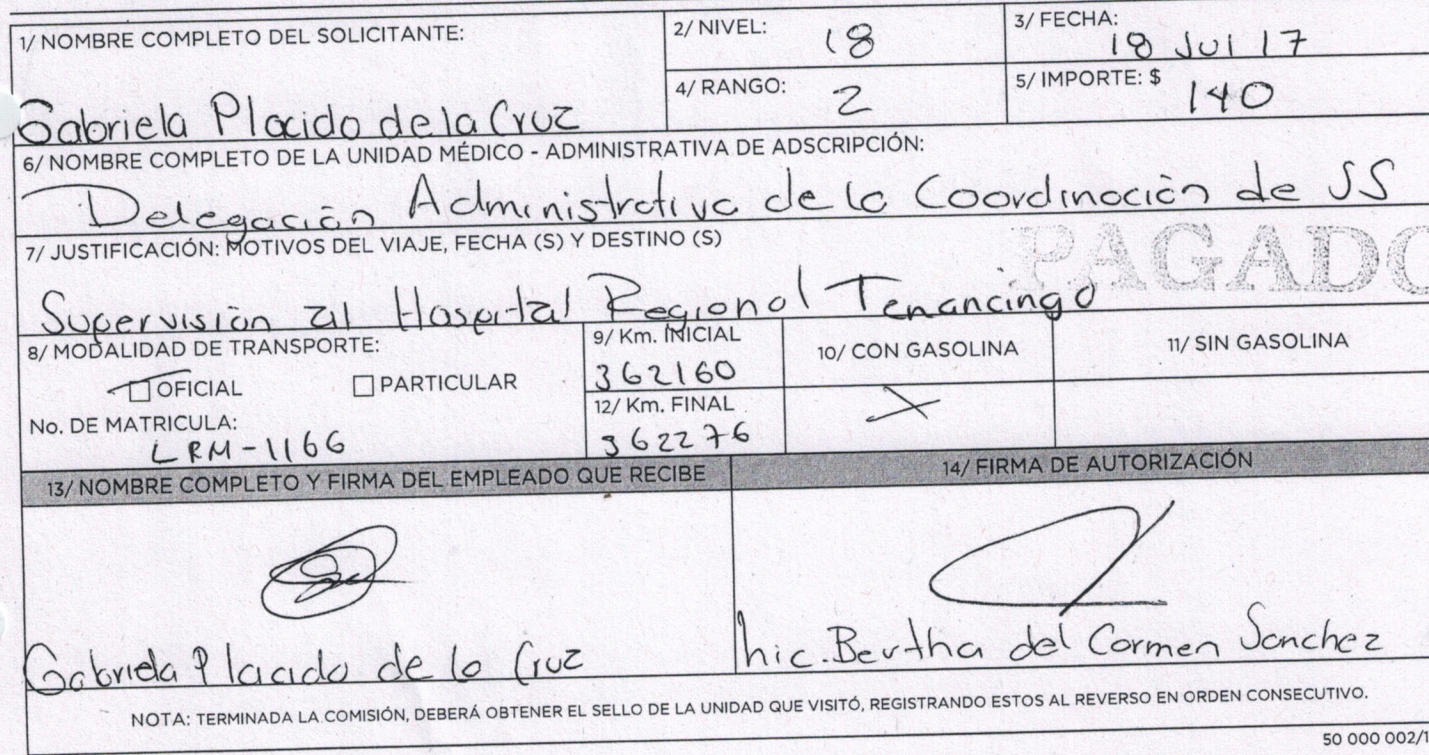 1/ NOMBRE COMPLETO DEL SOLICITANTE:
Gabriela Placido de la Cruz
2/ NIVEL: 18
3/ FECHA: 18 Jul 17
4/ RANGO: 2
5/ IMPORTE: $ 140
6/ NOMBRE COMPLETO DE LA UNIDAD MÉDICO - ADMINISTRATIVA DE ADSCRIPCIÓN:
Delegación Administrativa de la Coordinación de SS
7/ JUSTIFICACIÓN: MOTIVOS DEL VIAJE, FECHA (S) Y DESTINO (S)
PAGADO
Supervisión al Hospital Regional Tenancingo
8/ MODALIDAD DE TRANSPORTE:
OFICIAL PARTICULAR
No. DE MATRICULA:
LRM-1166
9/ Km. INICIAL
362160
12/ Km. FINAL
362276
10/ CON GASOLINA
X
11/ SIN GASOLINA
13/ NOMBRE COMPLETO Y FIRMA DEL EMPLEADO QUE RECIBE
Gabriela Placido de la Cruz
14/ FIRMA DE AUTORIZACIÓN
Lic. Bertha del Carmen Sanchez
NOTA: TERMINADA LA COMISIÓN, DEBERÁ OBTENER EL SELLO DE LA UNIDAD QUE VISITÓ, REGISTRANDO ESTOS AL REVERSO EN ORDEN CONSECUTIVO.
50 000 002/1